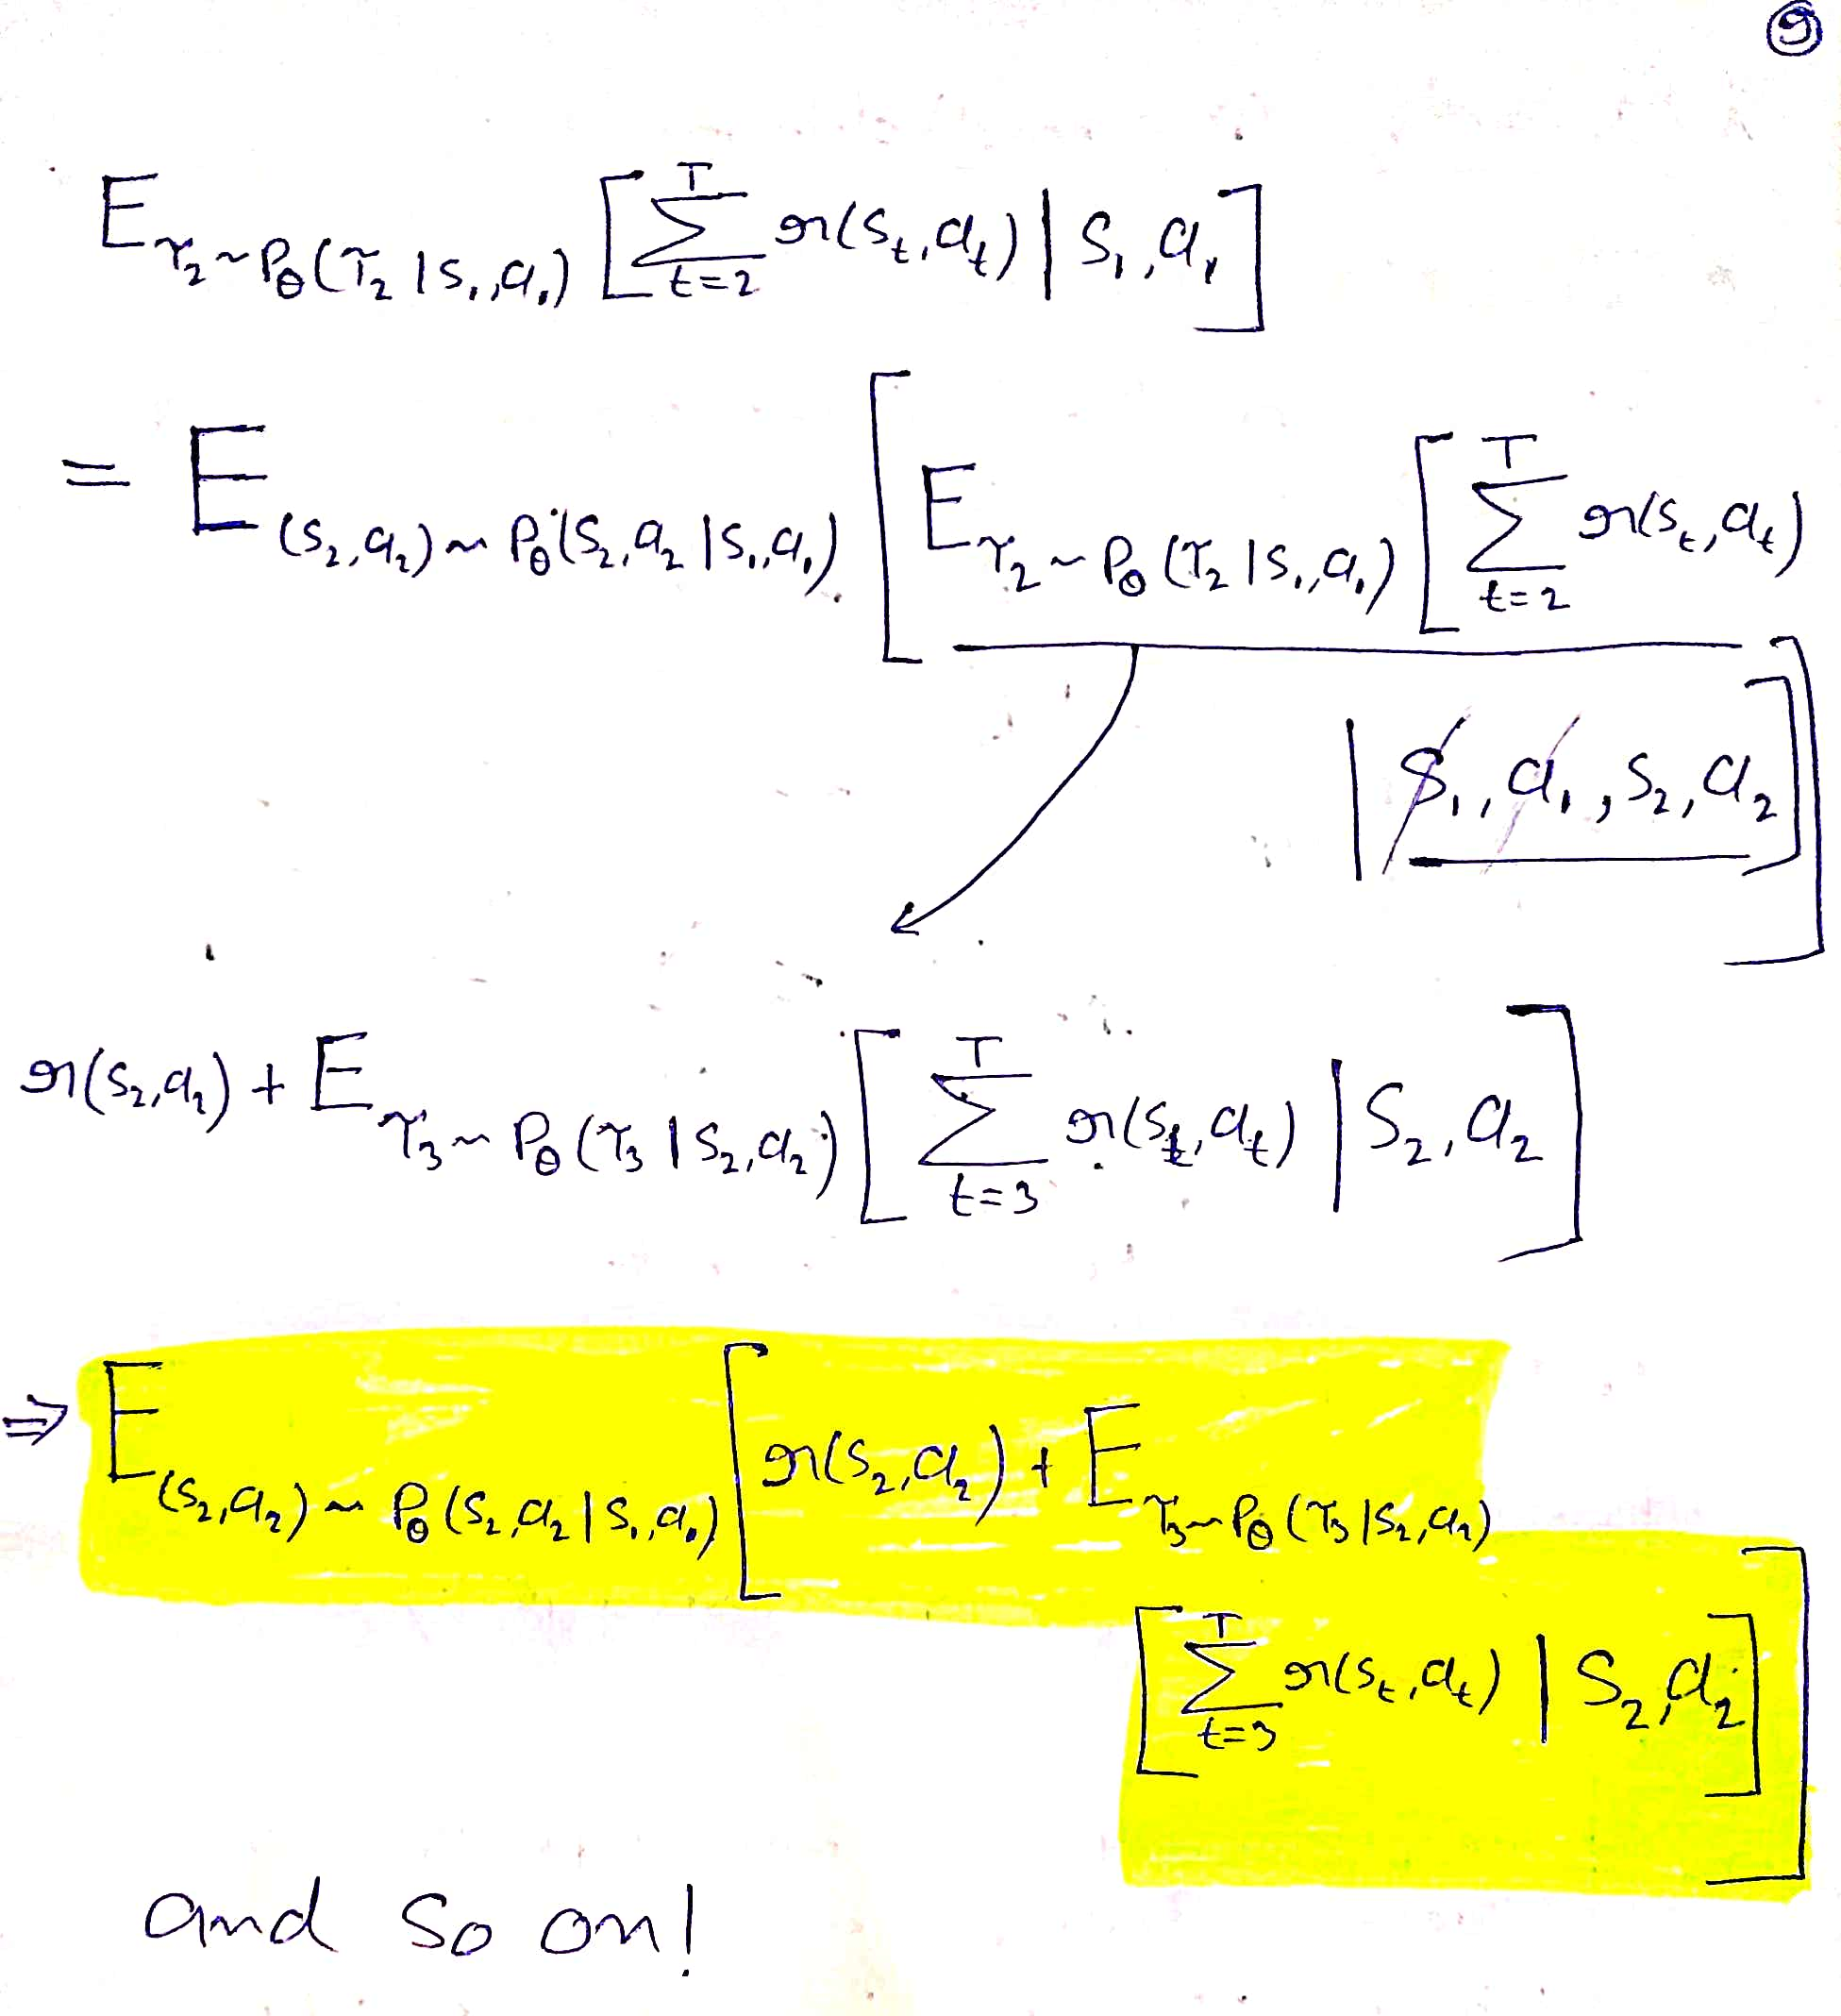 ⑨
E_{τ₂ ~ P_θ(τ₂ | s₁, a₁)} [ Σ_{t=2}^{T} r(s_t, a_t) | s₁, a₁ ]
= E_{(s₂, a₂) ~ P_θ(s₂, a₂ | s₁, a₁)} [ E_{τ₂ ~ P_θ(τ₂ | s₁, a₁)} [ Σ_{t=2}^{T} r(s_t, a_t)
| s₁, a₁, s₂, a₂ ] ]
r(s₂, a₂) + E_{τ₃ ~ P_θ(τ₃ | s₂, a₂)} [ Σ_{t=3}^{T} r(s_t, a_t) | s₂, a₂ ]
⇒ E_{(s₂, a₂) ~ P_θ(s₂, a₂ | s₁, a₁)} [ r(s₂, a₂) + E_{τ₃ ~ P_θ(τ₃ | s₂, a₂)}
[ Σ_{t=3}^{T} r(s_t, a_t) | s₂, a₂ ] ]
and so on!